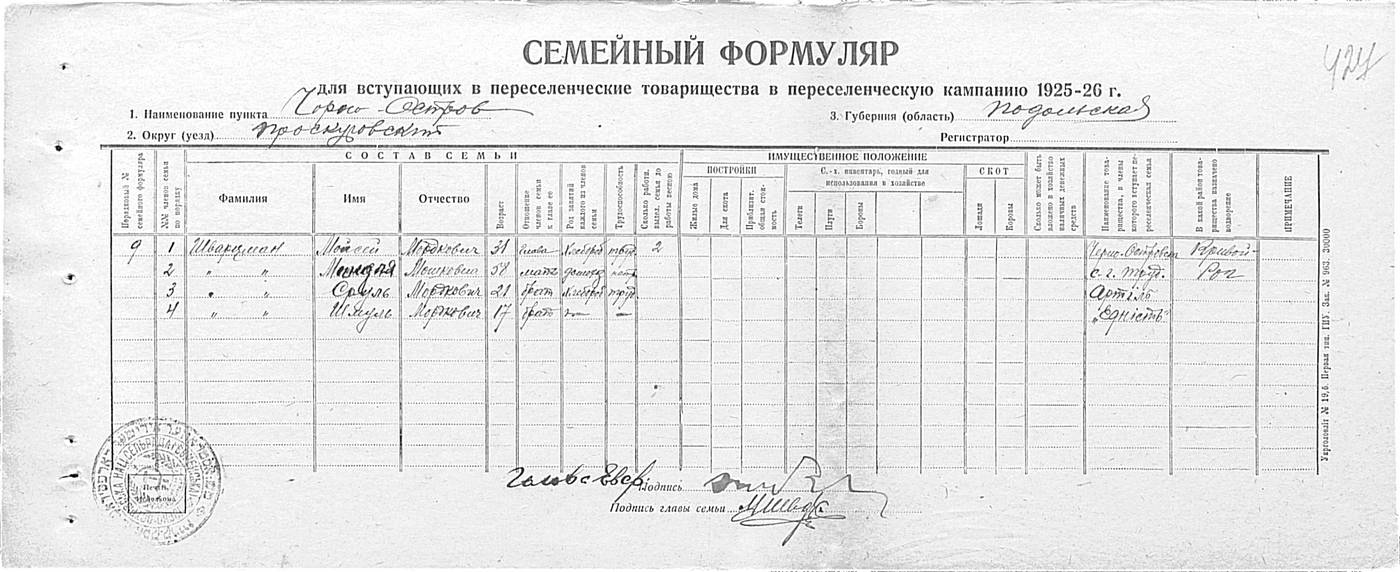 424
СЕМЕЙНЫЙ ФОРМУЛЯР
для вступающих в переселенческие товарищества в переселенческую кампанию 1925-26 г.
1. Наименование пункта Чорно-Остров 3. Губерния (область) Подольская
2. Округ (уезд) Проскуровский Регистратор
Порядковый № семейного формуляра
№№ членов семьи по порядку
СОСТАВ СЕМЬИ
Фамилия Имя Отчество
Возраст
Отношение членов семьи к главе ее
Род занятий каждого из членов семьи
Трудоспособность
Сколько работн. выдел. семья до работы весною
ИМУЩЕСТВЕННОЕ ПОЛОЖЕНИЕ
ПОСТРОЙКИ
Жилые дома
Для скота
Приблизит. общая стоимость
С.-х. инвентарь, годный для использования в хозяйстве
Телеги
Плуги
Бороны
СКОТ
Лошади
Коровы
Сколько может быть вложено в хозяйство наличных денежных средств
Наименование товарищества, в члены которого вступает переселенческая семья
В какой район товарищества назначено водворение
ПРИМЕЧАНИЕ
9 1 Шварцман Мойсей Мордкович 31 глава хлебороб труд. 2 Черно-Островск Кривой
2 " " Мошкович 58 мать с.-г. труд. Рог
3 " " Сруль Мордкович 21 брат хлебороб труд. Артіль
4 " " Шмуль Мордкович 17 брат —"— — „Єдність"
Голова Евер. Подпись
Подпись главы семьи МШвар
Укрголовліт № 19,6. Первая тип. ГПУ. Зак. № 963. 30000